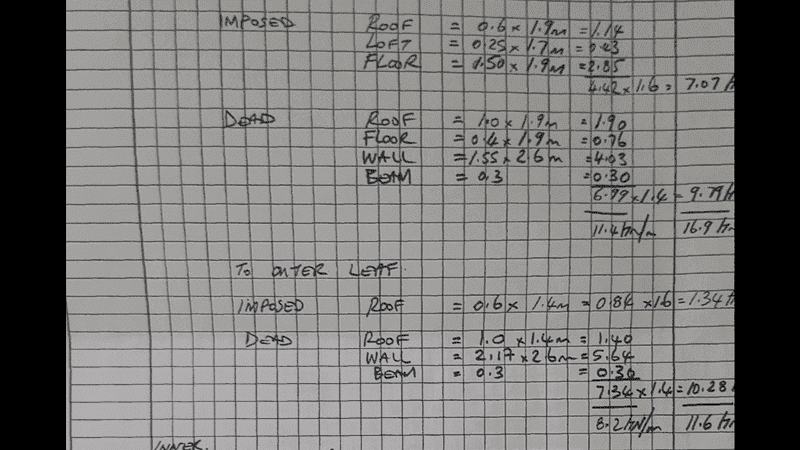 IMPOSED ROOF = 0.6 x 1.9m = 1.14
LOFT = 0.25 x 1.7m = 0.43
FLOOR = 1.50 x 1.9m = 2.85
4.42 x 1.6 = 7.07
DEAD ROOF = 1.0 x 1.9m = 1.90
FLOOR = 0.4 x 1.9m = 0.76
WALL = 1.55 x 2.6m = 4.03
BEAM = 0.3 = 0.30
6.99 x 1.4 = 9.79
11.4 kN/m 16.9
TO OUTER LEAF.
IMPOSED ROOF = 0.6 x 1.4m = 0.84 x 1.6 = 1.34
DEAD ROOF = 1.0 x 1.4m = 1.40
WALL = 2.17 x 2.6m = 5.64
BEAM = 0.3 = 0.30
7.34 x 1.4 = 10.28
8.2 kN/m 11.6
INNER